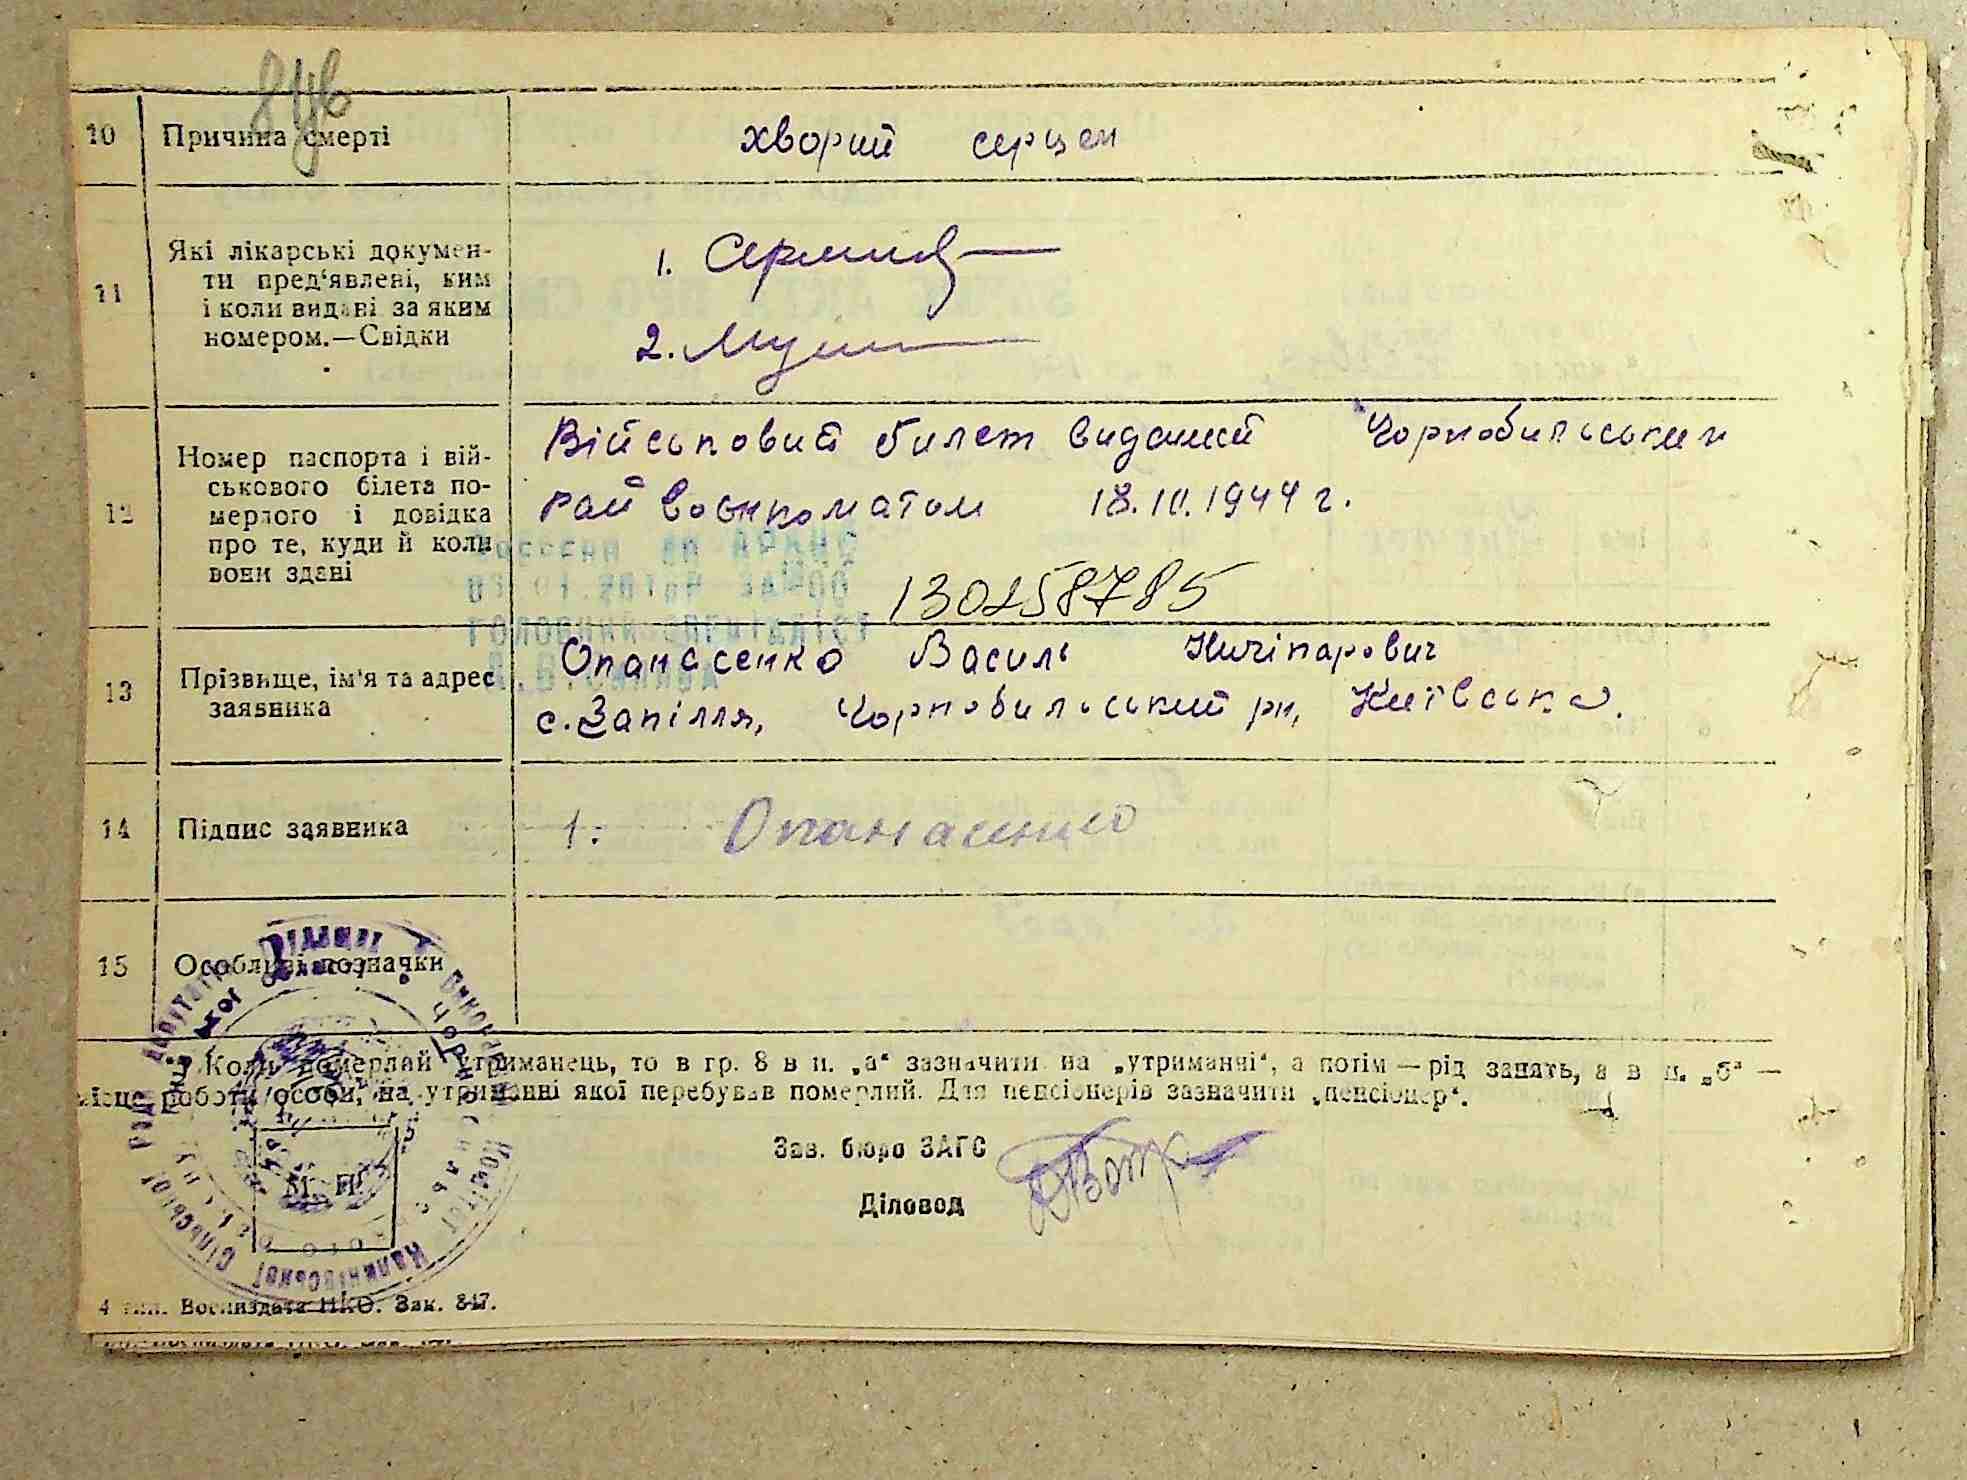 10 Причина смерті хворий серцем
11 Які лікарські докумен-
ти пред'явлені, ким
і коли видані за яким
номером.—Свідки
1.
2.
12 Номер паспорта і вій-
ськового білета по-
мерлого і довідка
про те, куди й коли
вони здані
Військовий билет виданий Чорнобильським
рай воєнкоматом 18.10.1944 г.
130258785
13 Прізвище, ім'я та адрес
заявника
Опанасенко Василь Ничіпарович
с. Запілля, Чорнобильський рн, Київська.
14 Підпис заявника 1. Опанасенко
15 Особливі позначки
Коли померлий утриманець, то в гр. 8 в п. „а“ зазначити на „утриманні“, а потім — рід занять, а в п. „б“ —
місце роботи особи, на утриманні якої перебував померлий. Для пенсіонерів зазначити „пенсіонер“.
Зав. бюро ЗАГС
Діловод
М. П.
4 тип. Воениздата НКО. Зак. 847.